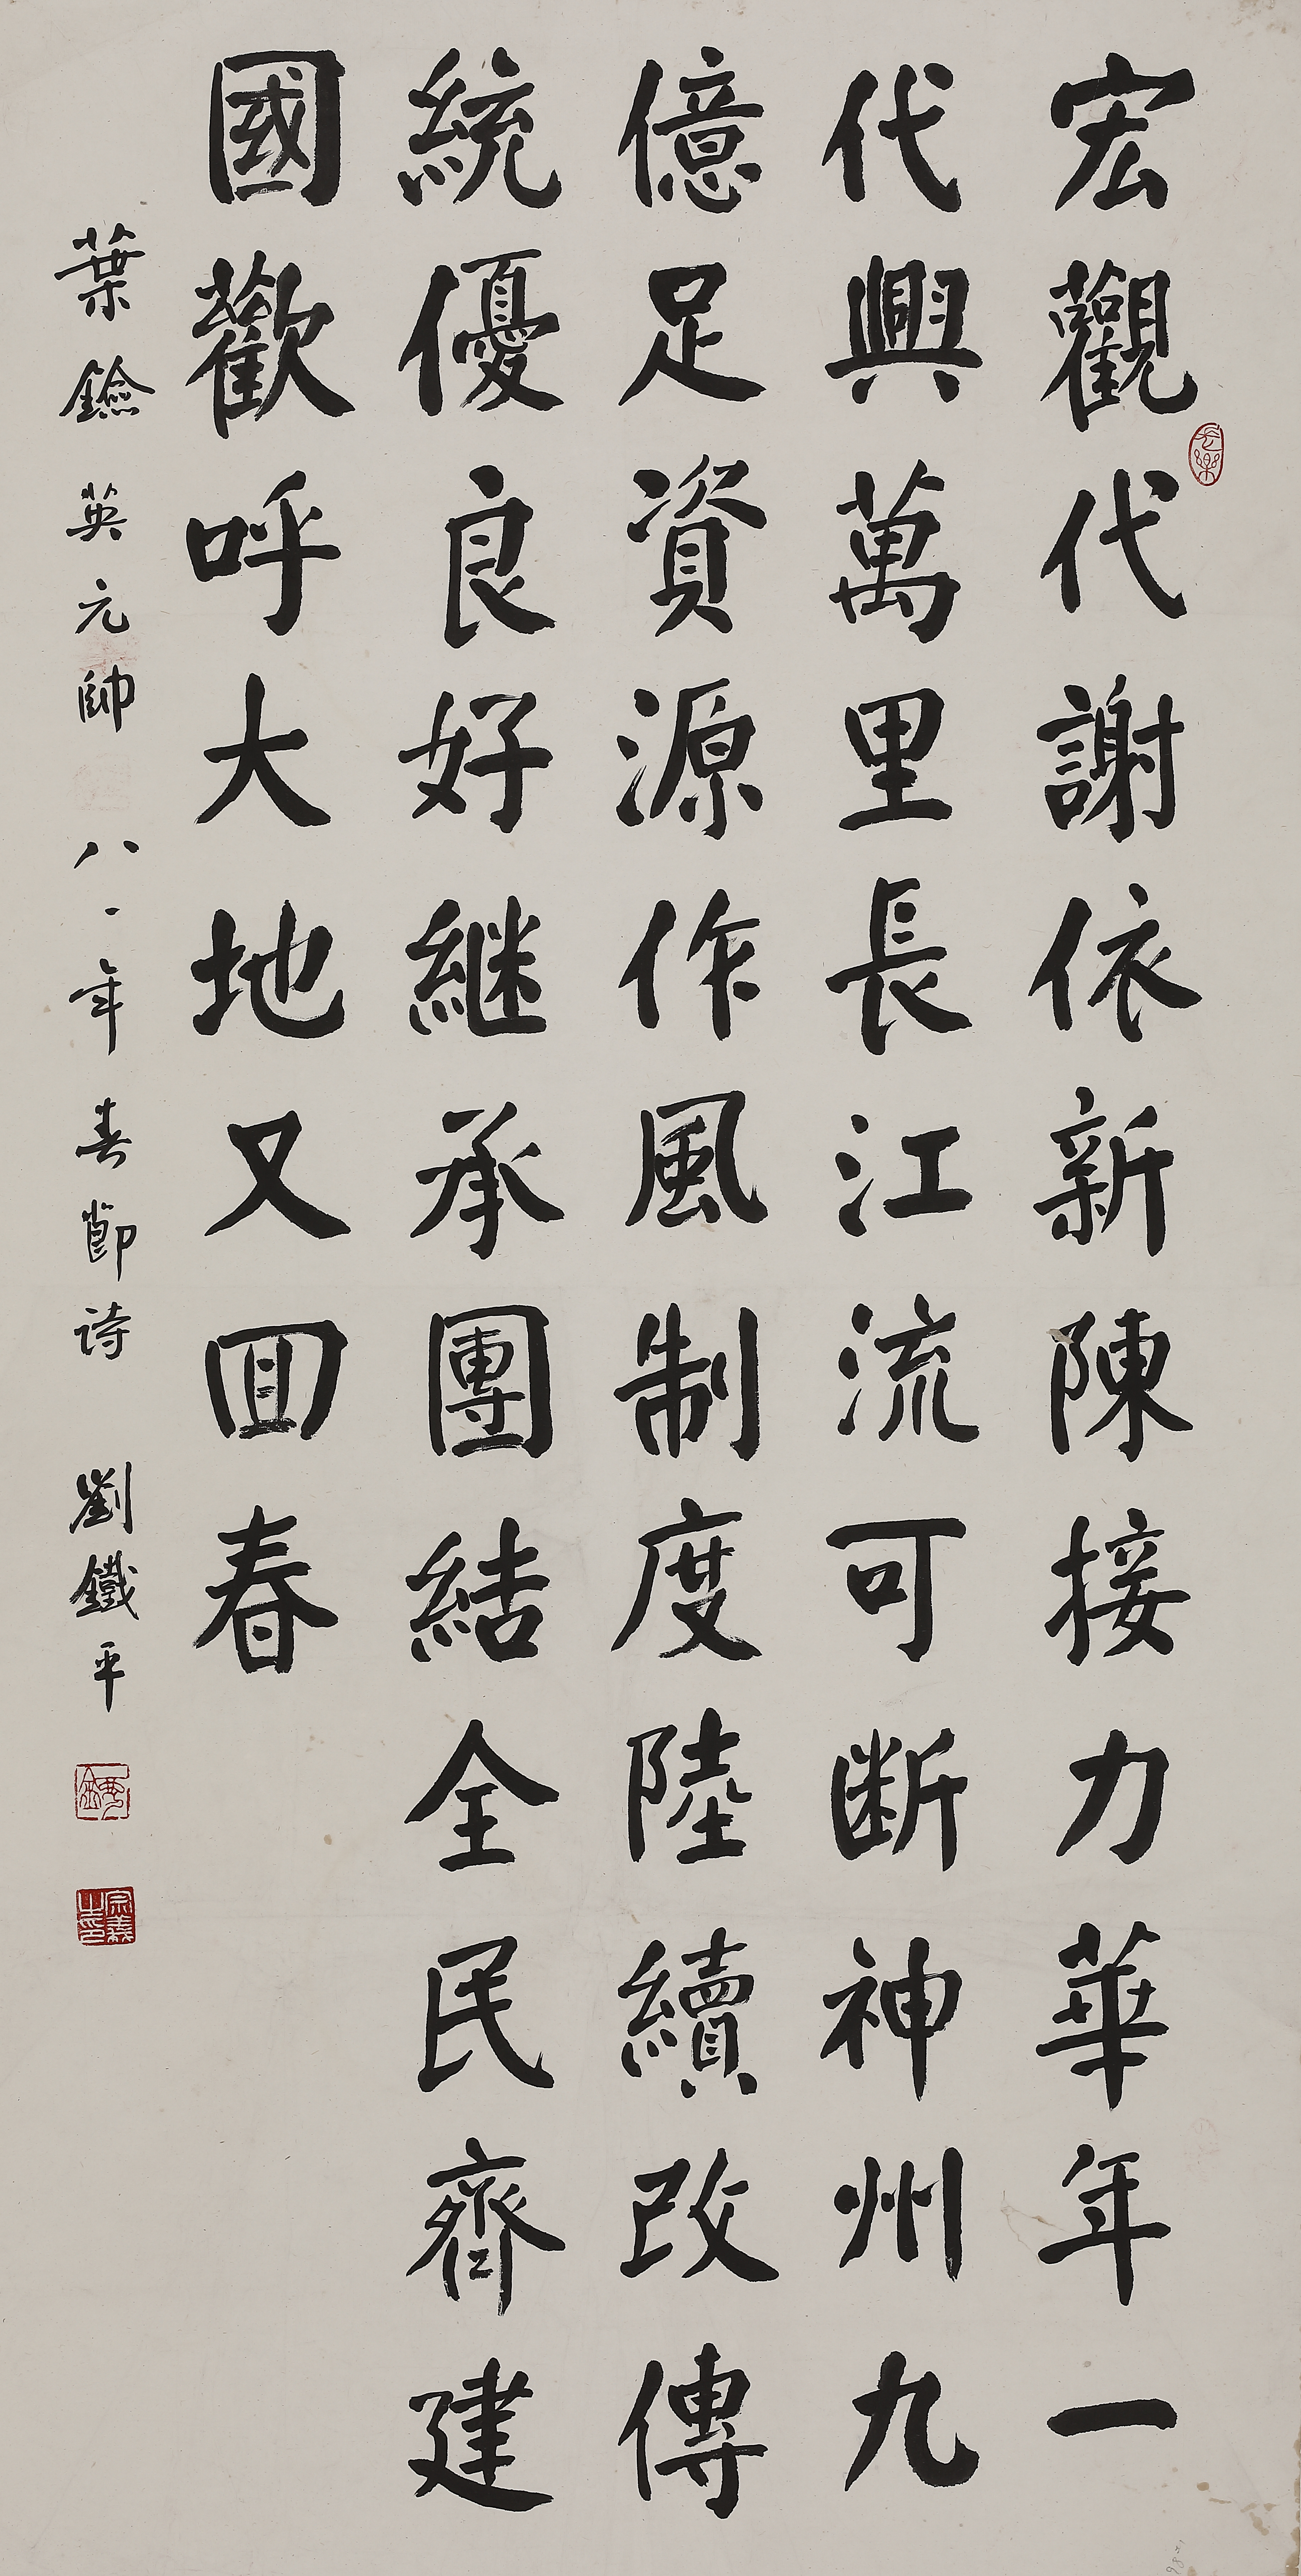 宏觀代謝依新陳接力華年一
代興萬里長江流可断神州九
億足資源作風制度陸續改傳
統優良好継承團結全民齊建
國歡呼大地又回春
葉鐱英元帥八一年春節诗 劉鐵平